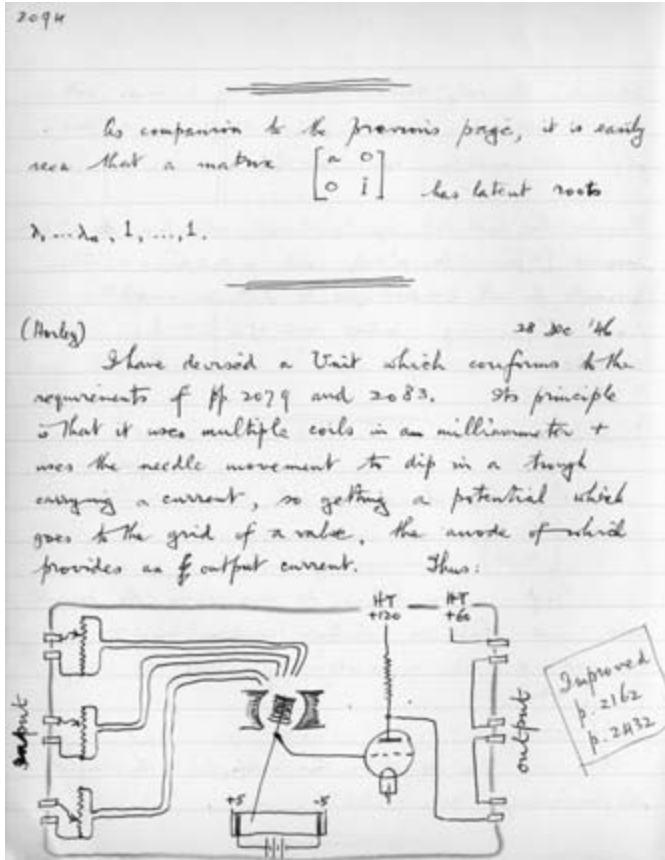 2094
As companion to the previous page, it is easily
seen that a matrix [a 0
0 I] has latent roots
λ, ... λn, 1, ..., 1.
(Horley) 28 Dec '46.
I have devised a Unit which conforms to the
requirements of pp 2079 and 2083. Its principle
is that it uses multiple coils in a milliammeter +
uses the needle movement to dip in a trough
carrying a current, so getting a potential which
goes to the grid of a valve, the anode of which
provides an output current. Thus:
HT HT
+120 +60
Input
output
Improved
p. 2162
p. 2432
+5 -5